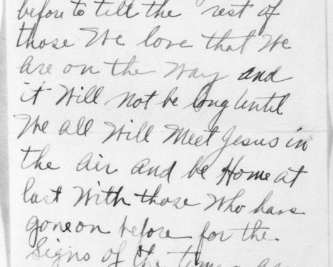 before to tell the rest of
those We love that We
are on the Way and
it Will not be long Until
We all Will Meet Jesus in
the air and be Home at
last With those Who have
gone on before for the
Signs of the times as